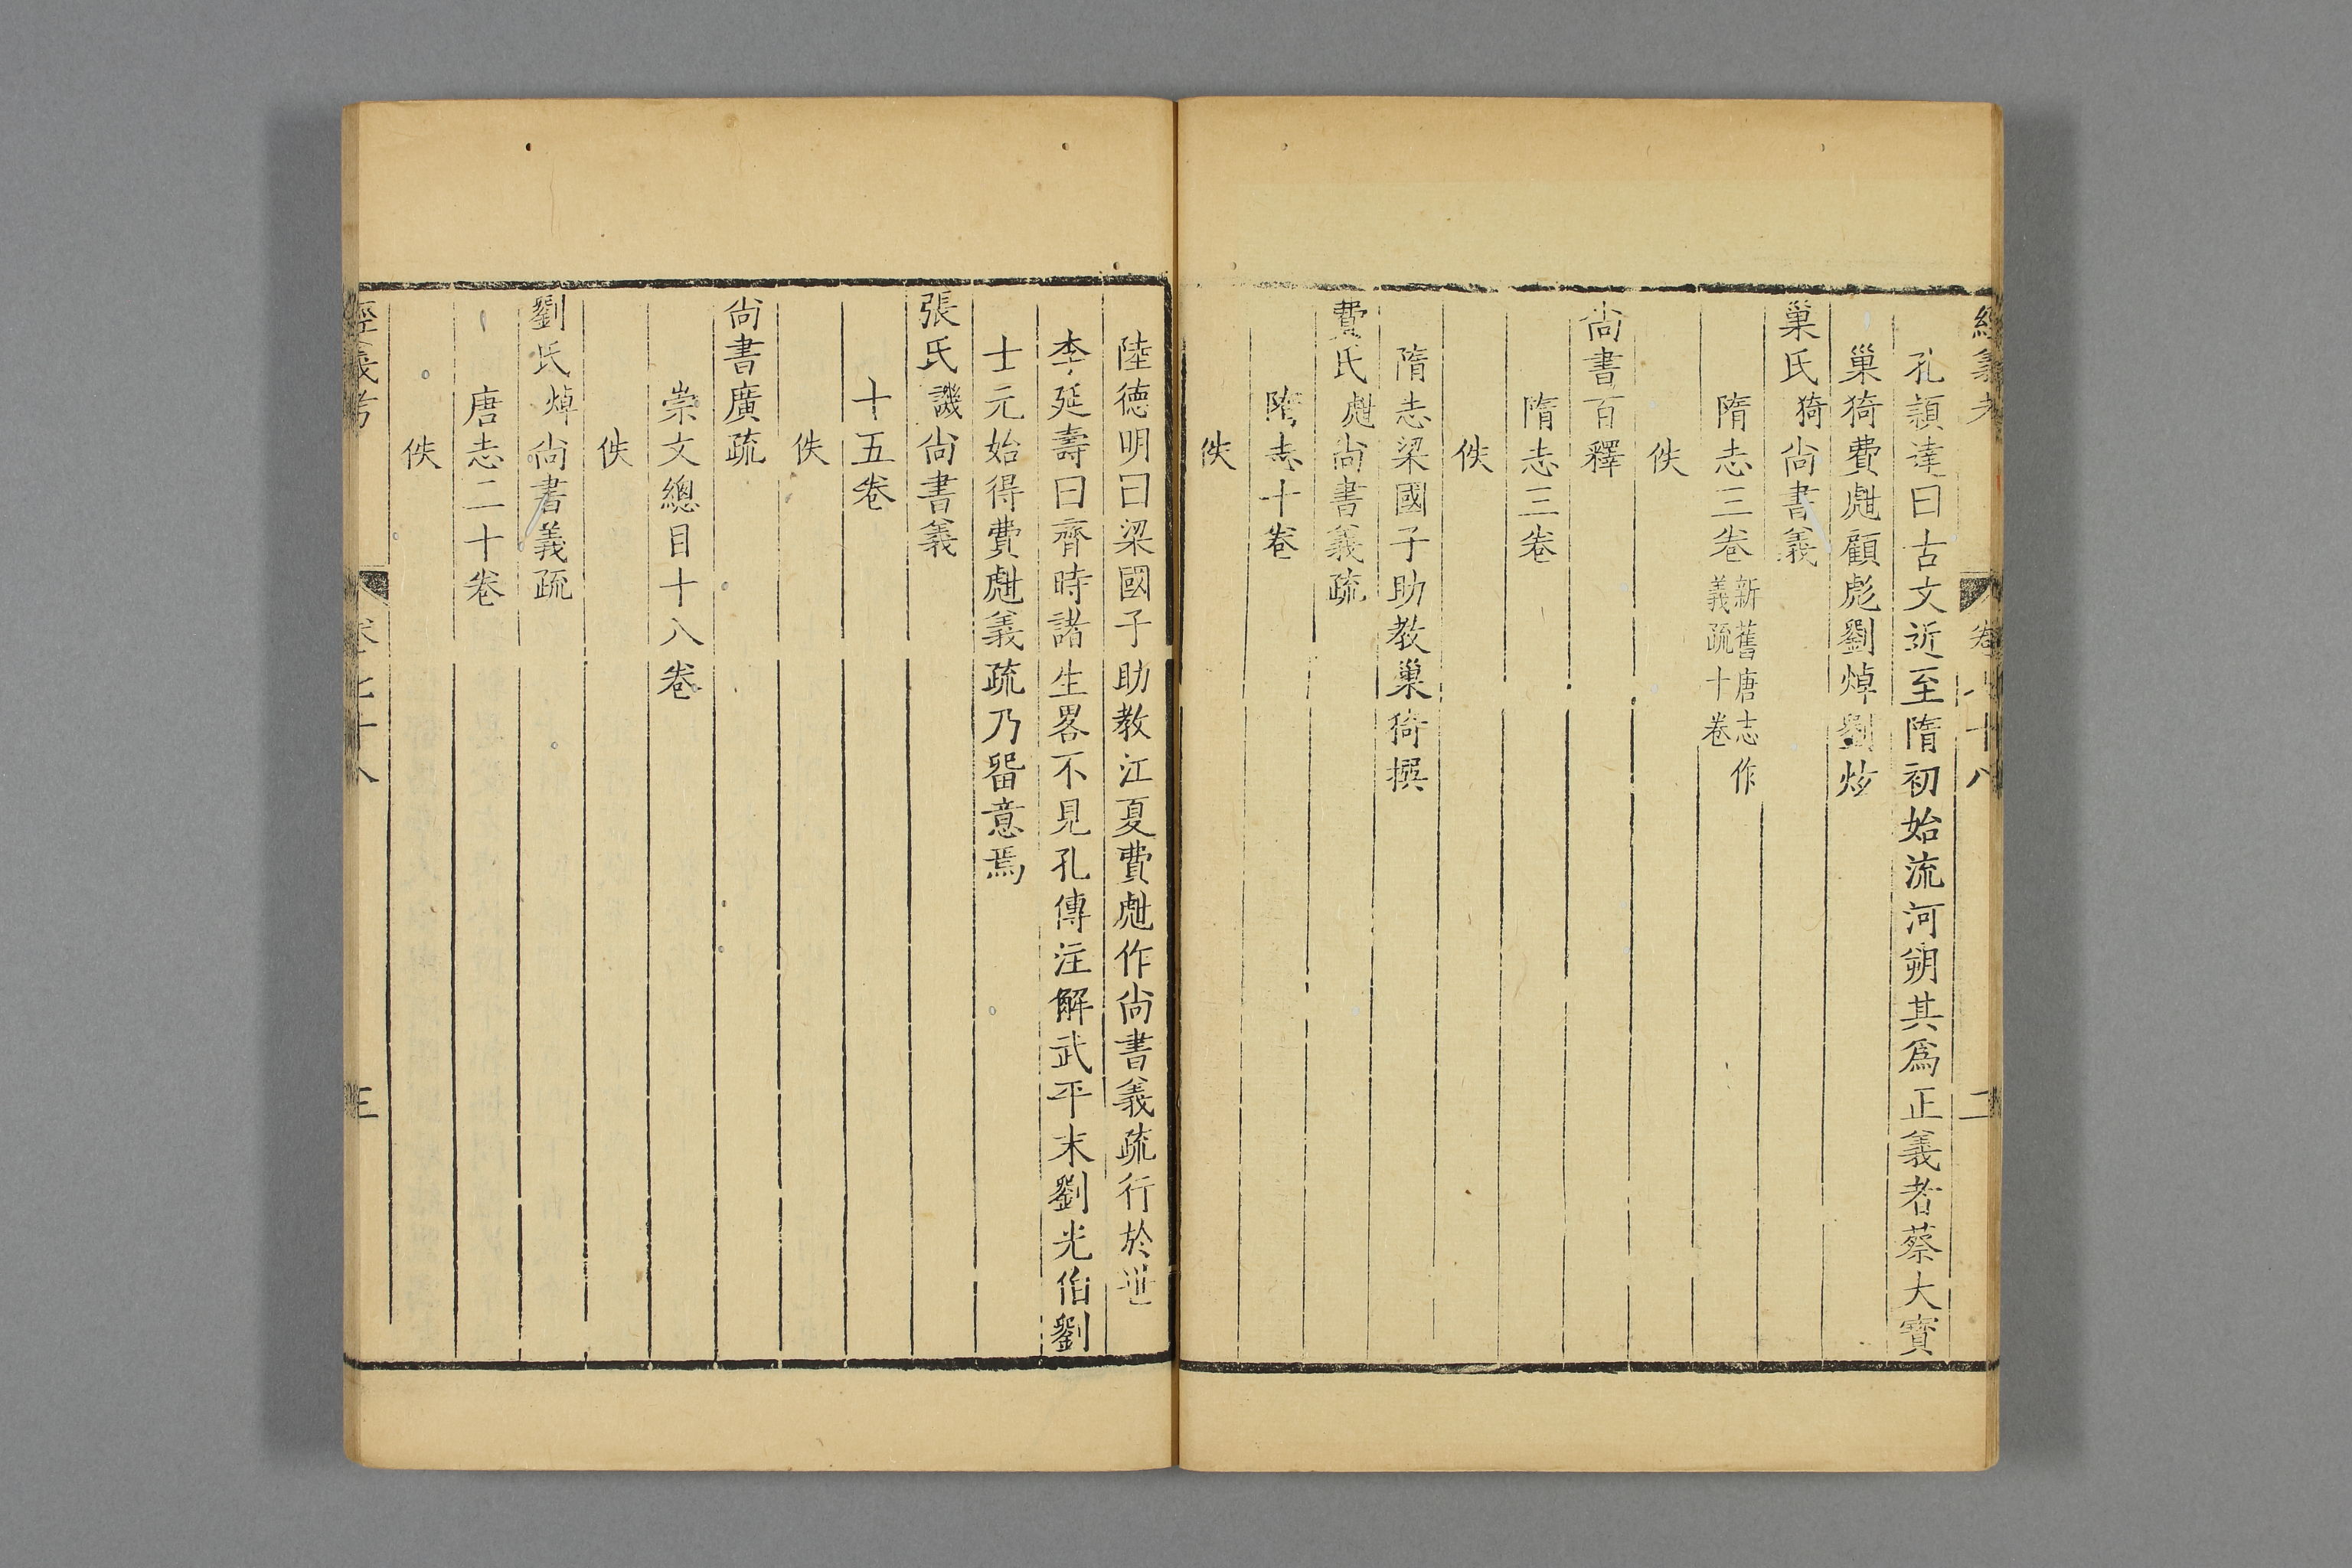 經義考 卷七十八 二
孔穎達曰古文近至隋初始流河朔其爲正義者蔡大寶
巢猗費甝顧彪劉焯劉炫
巢氏猗尚書義
隋志三卷新舊唐志作義疏十卷
佚
尚書百釋
隋志三卷
佚
隋志梁國子助教巢猗撰
費氏甝尚書義疏
隋志十卷
佚
陸德明曰梁國子助教江夏費甝作尚書義疏行於世
李延壽曰齊時諸生畧不見孔傳注解武平末劉光伯劉
士元始得費甝義疏乃畱意焉
張氏譏尚書義
十五卷
佚
尚書廣疏
崇文總目十八卷
佚
劉氏焯尚書義疏
唐志二十卷
佚
經義考 卷七十八 三